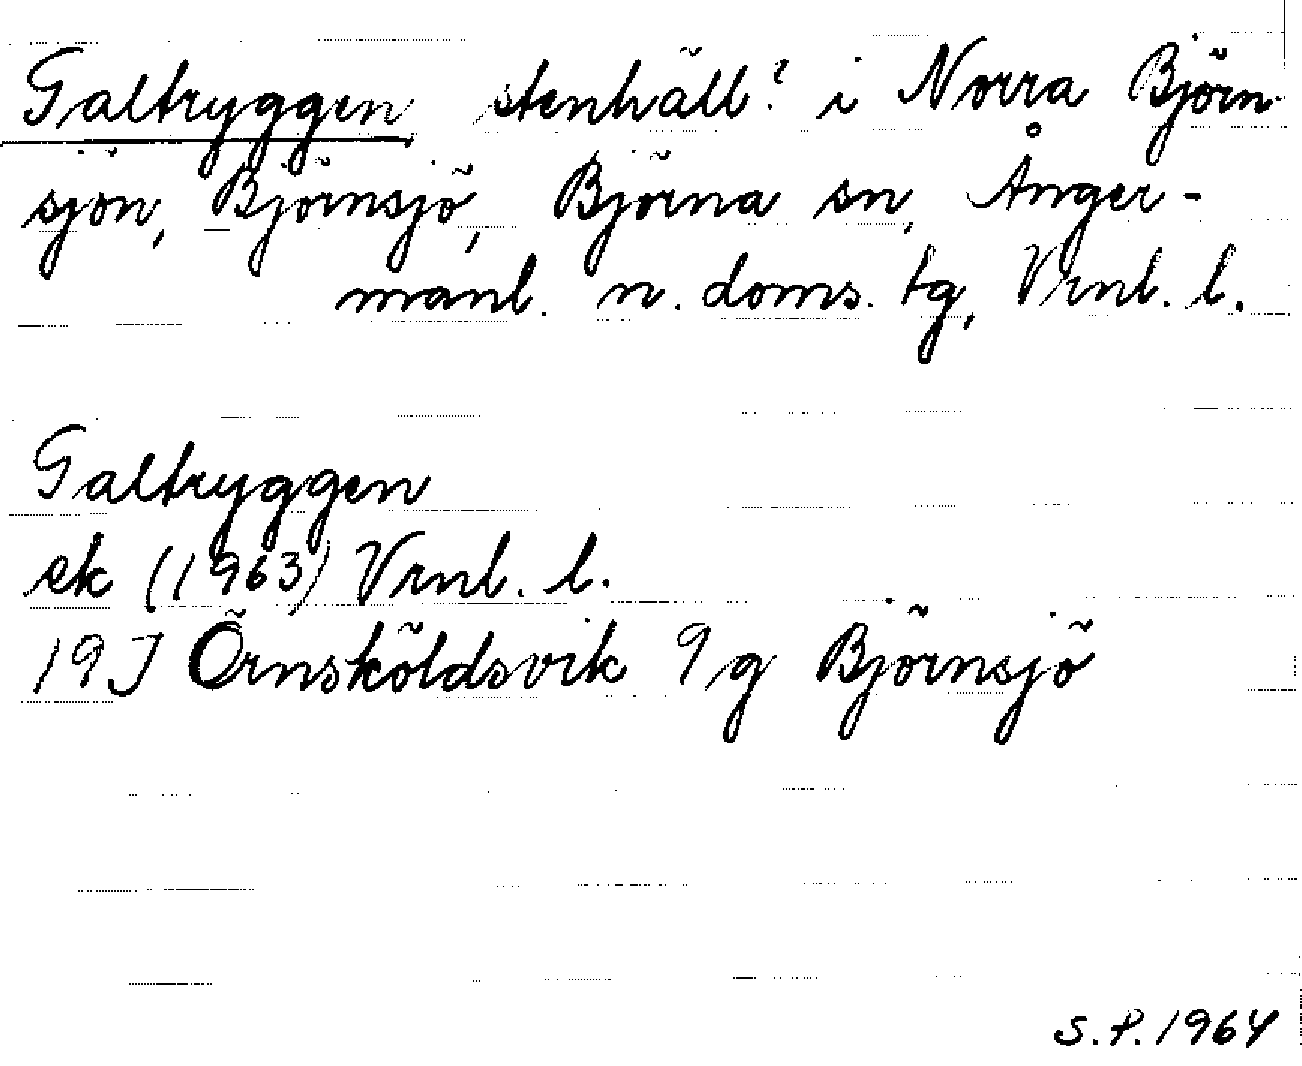 Galtryggen stenhäll? i Norra Björn-
sjön, Björnsjö, Björna sn, Ånger-
manl. n. doms. tg, Vrnl. l.
Galtryggen
ek (1963) Vrnl. l.
19J Örnsköldsvik 9g Björnsjö
S.P. 1964